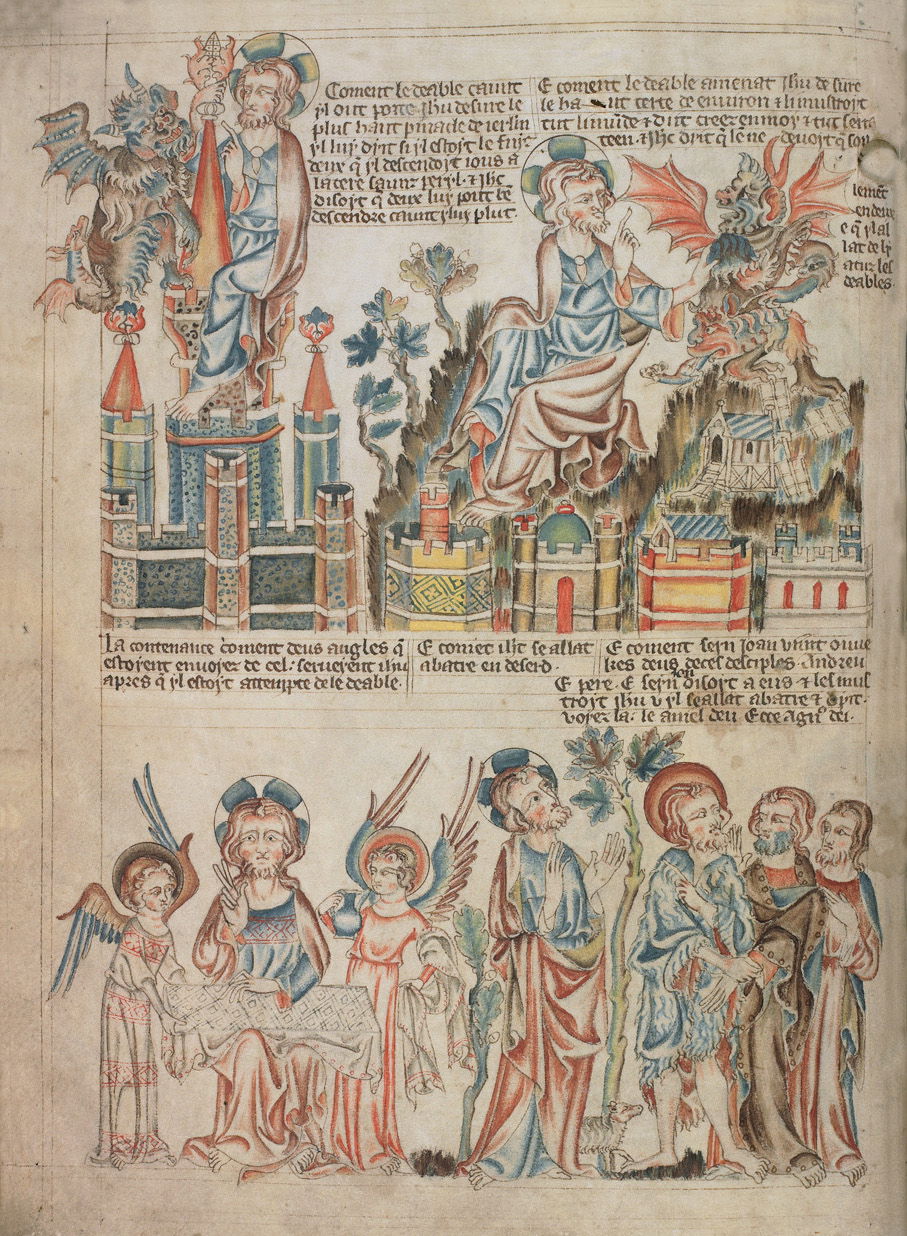 Coment le deable cauut
yl out porte ihu desure le
plus haut pinacle de ierlm
y luy dyst si yl estoyt le fuiz
deux q̄ yl descendoyt ious a
la tere saunz peryl · ⁊ ihc
disoyt q̄ deux luy poüt bē
descendre cauut yluy plut ·
E coment le deable amenat ihu de sure
le ha ut terte de environ ⁊ li mustroyt
tut li munde ⁊ dit creez en moy ⁊ tut serra
teen · ⁊ ihc dyt q̄ le ne devoyt q̄ soul
lemēt
en deux
e q̄ yl al
lat de ly
atur les
deables ·
La contenance coment deus angles q̄
estoyent envoyez de cel · serverent ihu
apres q̄ yl estoyt attempte de le deable ·
E comēt ihc se allat
abatre en deserd ·
E coment seyn Joan vynt ovve
kes deus deces desciples · Andreu
E pere · E seyn Jon disoyt a eus ⁊ les mus
troyt ihu v yl se allat abatre ⁊ dyt ·
voyez la · le aniel deu Ecce Agn⁹ dei ·